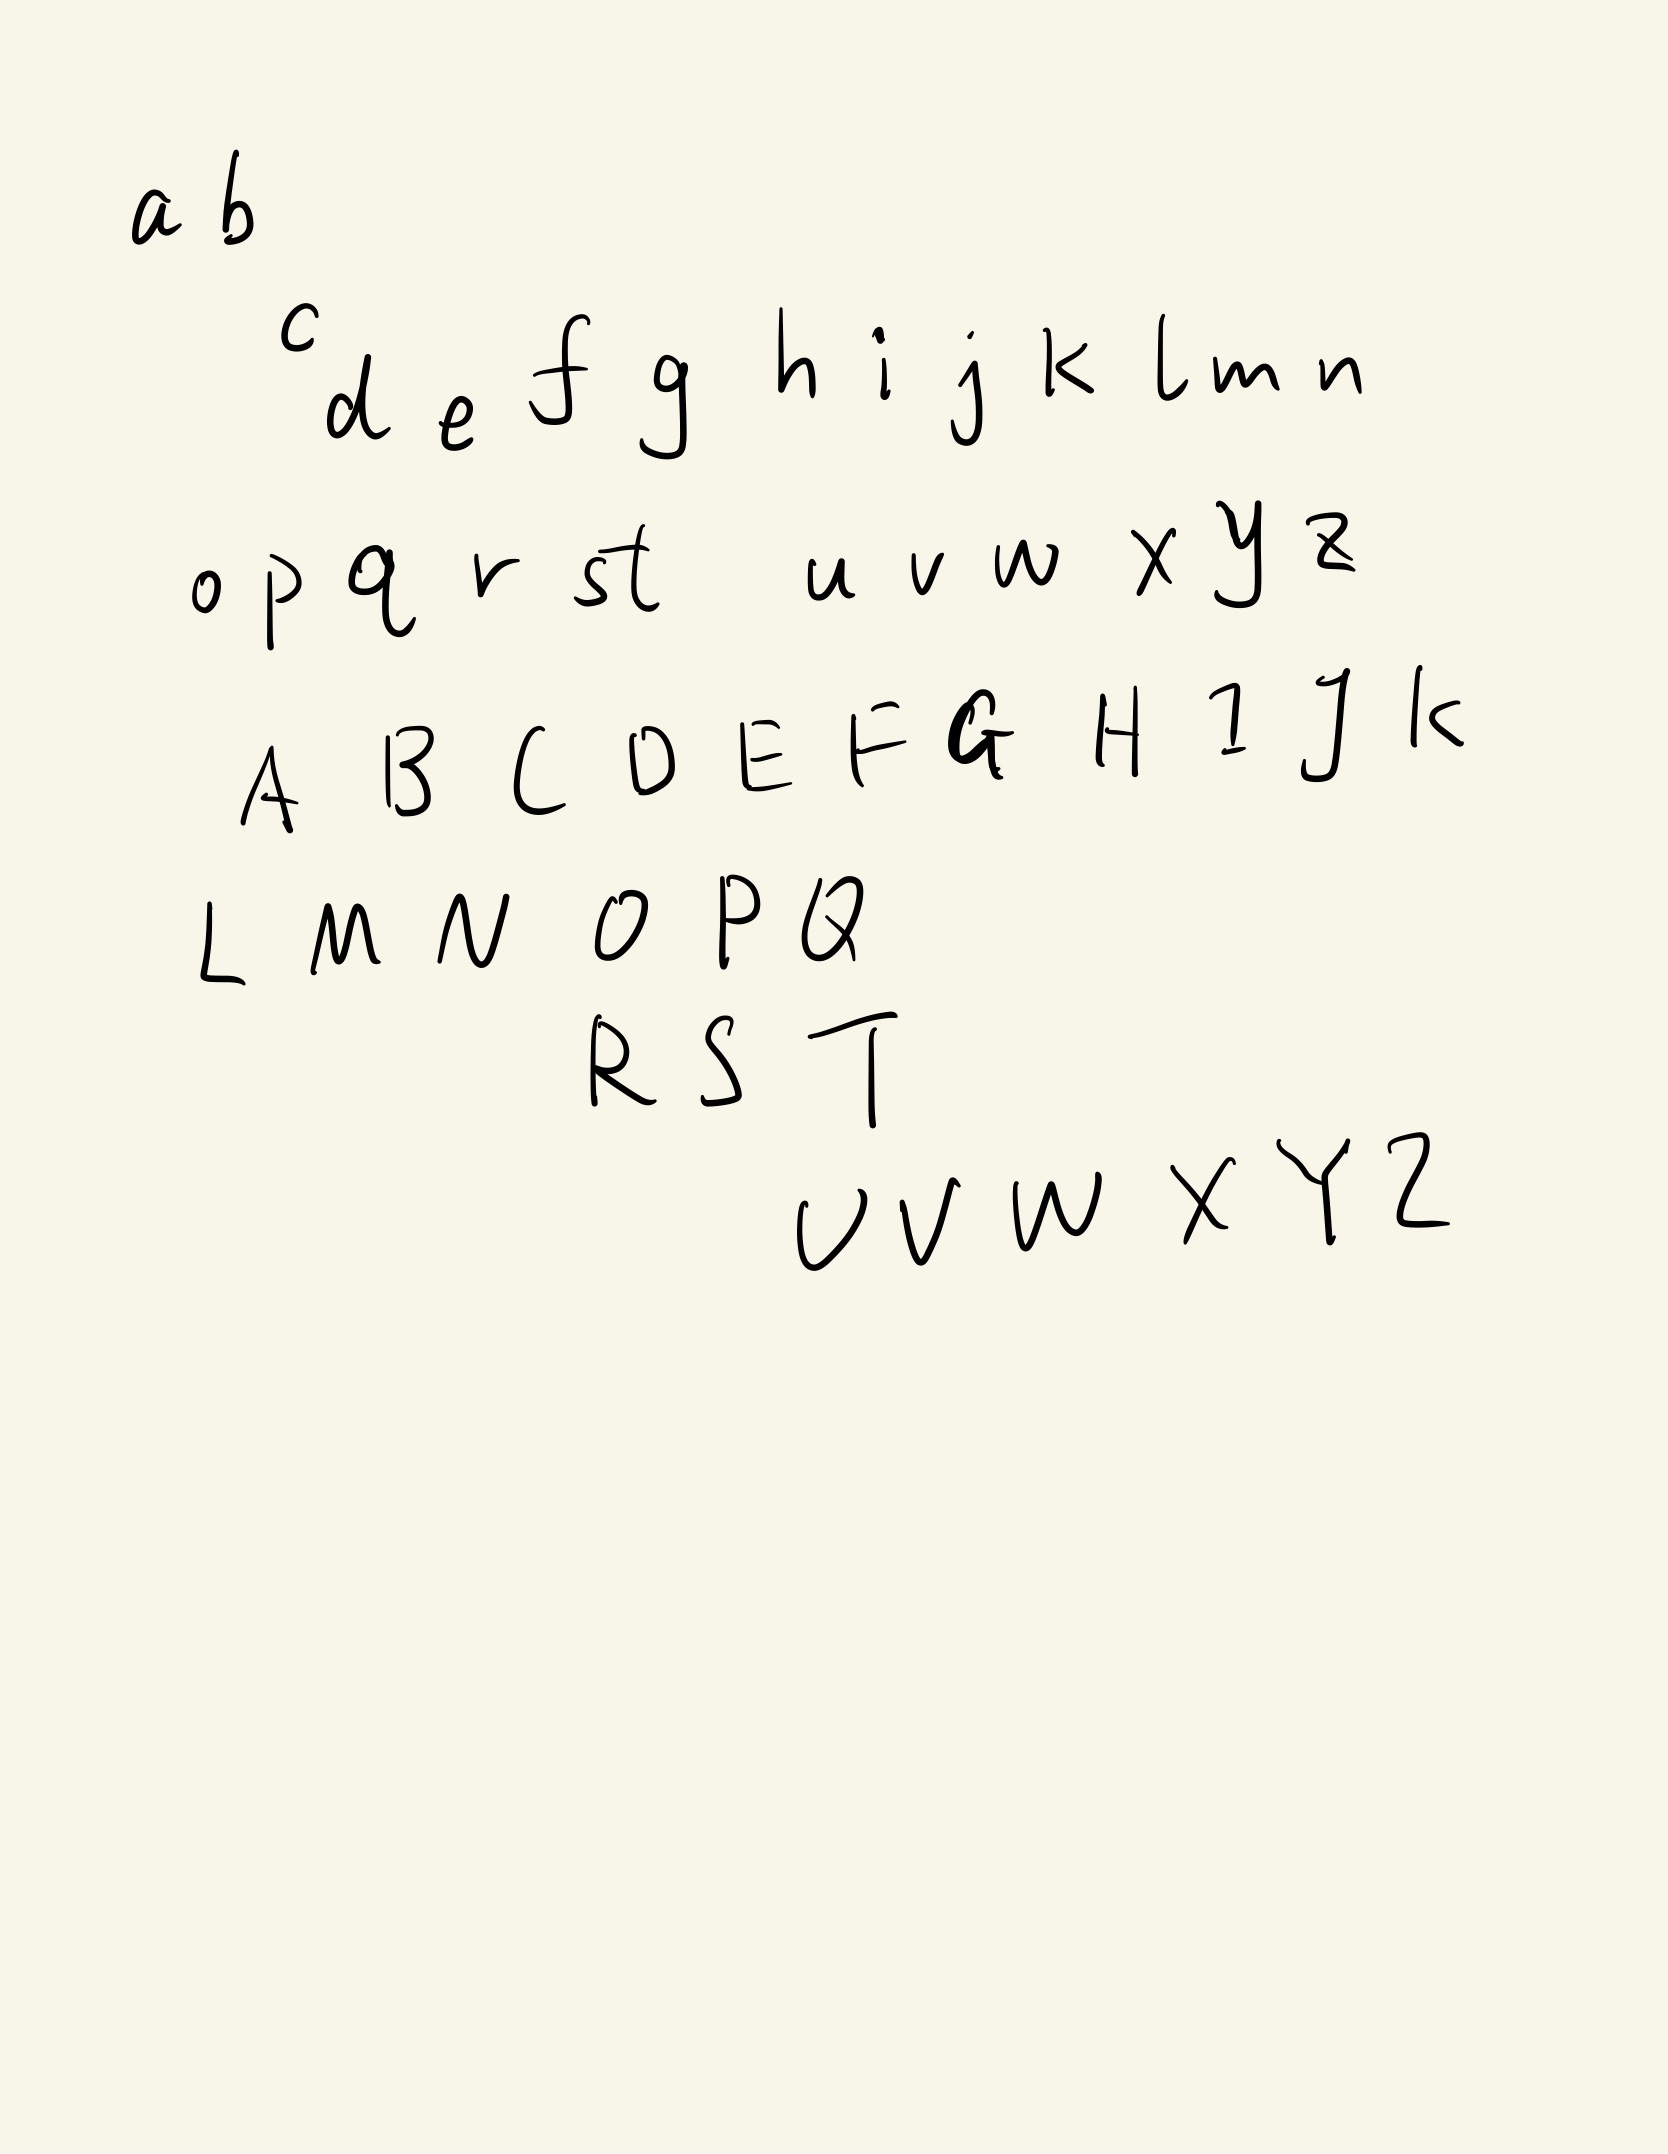 a b
c d e f g h i j k l m n
o p q r s t u v w x y z
A B C D E F G H I J K
L M N O P Q
R S T
U V W X Y Z